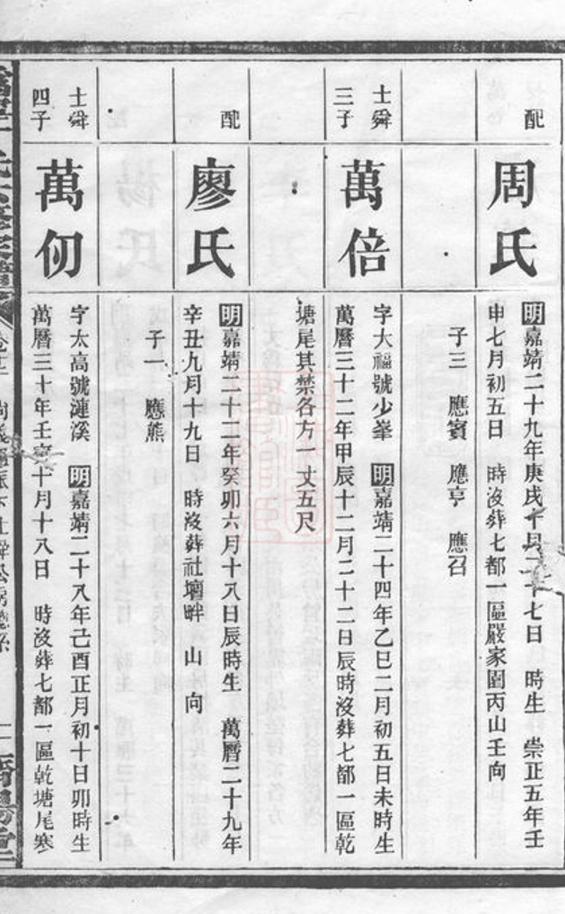 配
周氏
明嘉靖二十九年庚戌十月二十七日　時生　崇正五年壬
申七月初五日　時沒葬七都一區嚴家園丙山壬向
子三　應賓　應亨　應召
士舜
三子
萬倍
字大福號少峯　明嘉靖二十四年乙巳二月初五日未時生
萬曆三十二年甲辰十二月二十二日辰時沒葬七都一區乾
塘尾其禁各方一丈五尺
配
廖氏
明嘉靖二十二年癸卯六月十八日辰時生　萬曆二十九年
辛丑九月十九日　時沒葬社壇畔　山　向
子一　應熊
士舜
四子
萬仞
字太高號漣溪　明嘉靖二十八年己酉正月初十日卯時生
萬曆三十年壬寅十月十八日　時沒葬七都一區乾塘尾寒